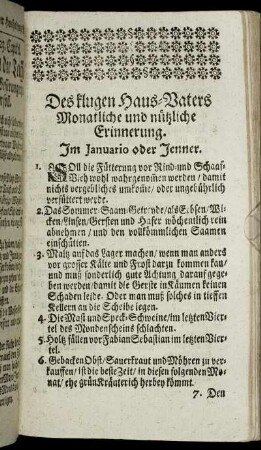 Des klugen Haus-Vaters
Monatliche und nützliche
Erinnerung.
Im Januario oder Jenner.
1. Soll die Fütterung vor Rind- und Schaaf-
Vieh wohl wahrgenom̃en werden / damit
nichts vergebliches umkom̃e / oder ungebührlich
verfüttert werde.
2. Das Sommer-Saam-Getreyde / als Erbsen / Wi-
cken / Linsen / Gersten und Hafer wöchentlich rein
abnehmen / und den vollkömmlichen Saamen
einschütten.
3. Maltz auf das Lager machen / wenn man anders
vor grosser Kälte und Frost darzu kommen kan /
und muß sonderlich gute Achtung darauf gege-
ben werden / damit die Gerste in Käumen keinen
Schaden leide. Oder man muß solches in tieffen
Kellern an die Scheibe legen.
4. Die Mast und Speck-Schweine / im letzten Vier-
tel des Mondenscheins schlachten.
5. Holtz fällen vor Fabian Sebastian im letzten Vier-
tel.
6. Gebacken Obst / Sauerkraut und Möhren zu ver-
kauffen / ist die beste Zeit / in diesen folgenden Mo-
nat / ehe grün Kräuterich herbey kömmt.
7. Den